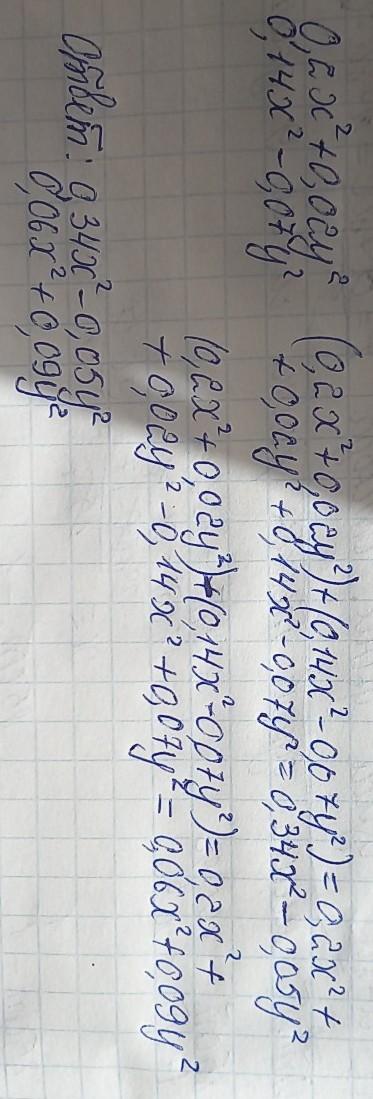 0,2x² + 0,02y²
0,14x² - 0,07y²
(0,2x² + 0,02y²) + (0,14x² - 0,07y²) = 0,2x² +
+ 0,02y² + 0,14x² - 0,07y² = 0,34x² - 0,05y²
(0,2x² + 0,02y²) - (0,14x² - 0,07y²) = 0,2x² +
+ 0,02y² - 0,14x² + 0,07y² = 0,06x² + 0,09y²
Ответ: 0,34x² - 0,05y²
0,06x² + 0,09y²